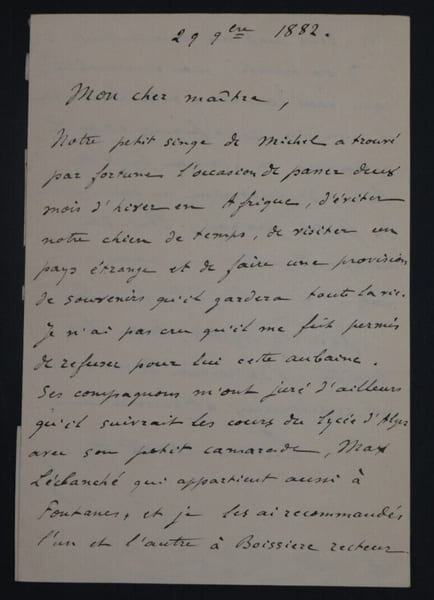 29 9bre 1882.
Mon cher maître,
Notre petit singe de Michel a trouvé
par fortune l'occasion de passer deux
mois d'hiver en Afrique, d'éviter
notre chien de temps, de visiter un
pays étrange et de faire une provision
de souvenirs qu'il gardera toute la vie.
Je n'ai pas cru qu'il me fût permis
de refuser pour lui cette aubaine.
Ses compagnons m'ont juré d'ailleurs
qu'il suivrait les cours du lycée d'Alger
avec son petit camarade, Max
Léclanché qui appartient aussi à
Fontanes, et je les ai recommandés
l'un et l'autre à Boissiere recteur